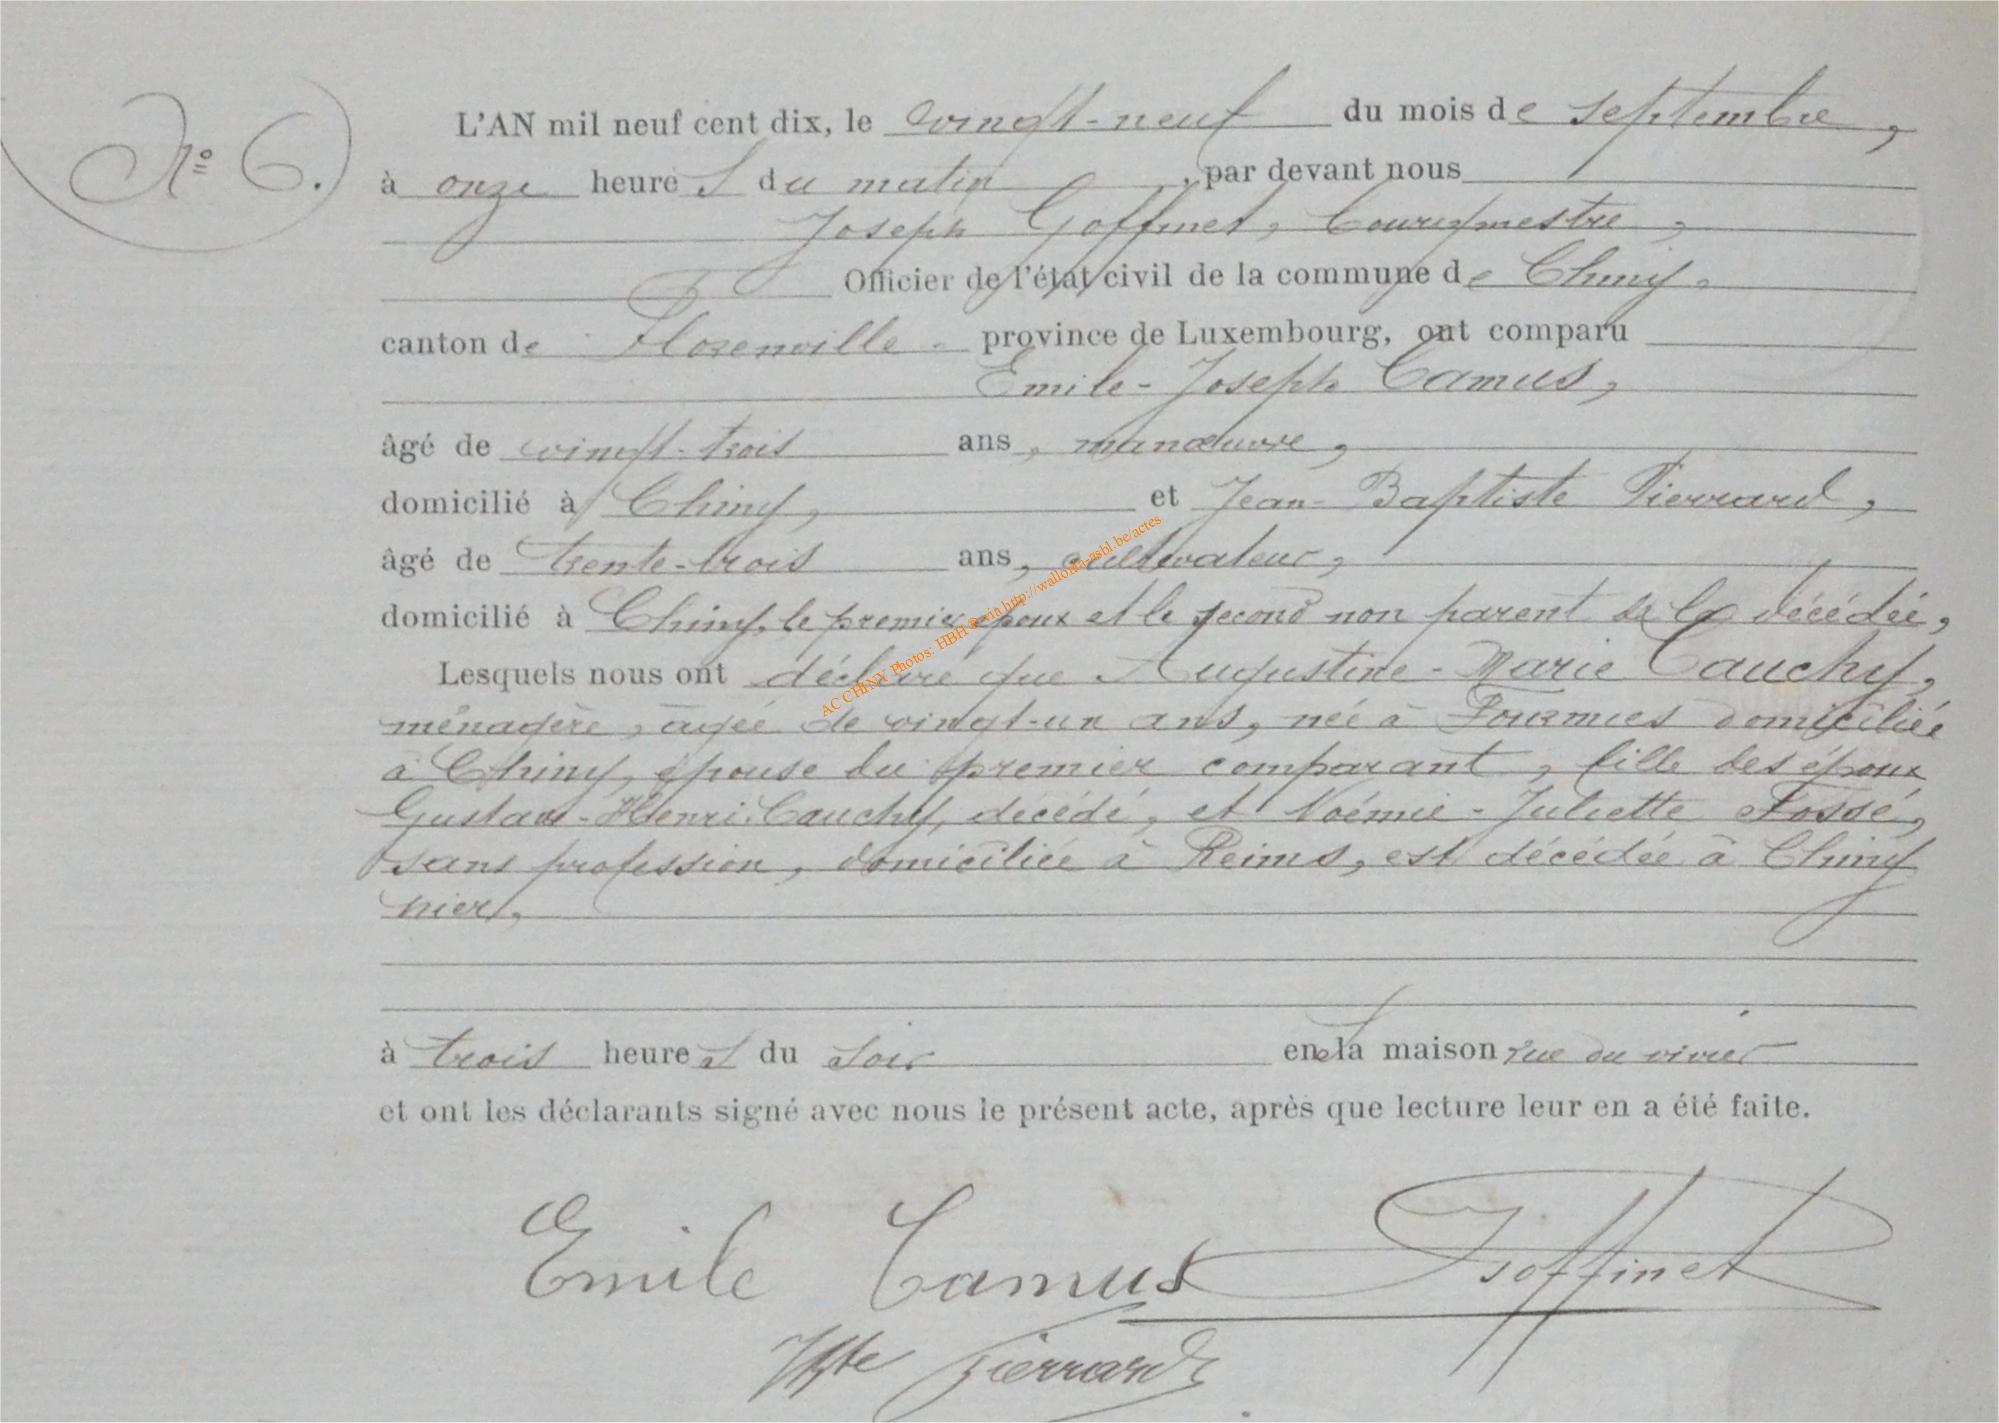 N° 6.
L'AN mil neuf cent dix, le vingt-neuf du mois de septembre,
à onze heures du matin, par devant nous
Joseph Goffinet, bourgmestre,
Officier de l'état civil de la commune de Chiny,
canton de Florenville - province de Luxembourg, ont comparu
Emile-Joseph Camus,
âgé de vingt-trois ans, manœuvre,
domicilié à Chiny, et Jean-Baptiste Pierrard,
âgé de trente-trois ans, cultivateur,
domicilié à Chiny, le premier époux et le second non parent de la décédée,
Lesquels nous ont déclaré que Augustine-Marie Cauchy,
ménagère, âgée de vingt-un ans, née à Fourmies domiciliée
à Chiny, épouse du premier comparant, fille des époux
Gustave-Henri Cauchy, décédé, et Noémie-Juliette Fossé,
sans profession, domiciliée à Reims, est décédée à Chiny
hier,
à trois heures du soir en sa maison rue du vivier
et ont les déclarants signé avec nous le présent acte, après que lecture leur en a été faite.
Emile Camus Goffinet
Pierrard
AC CHINY Photos: HBH © via http://wallonia-asbl.be/actes